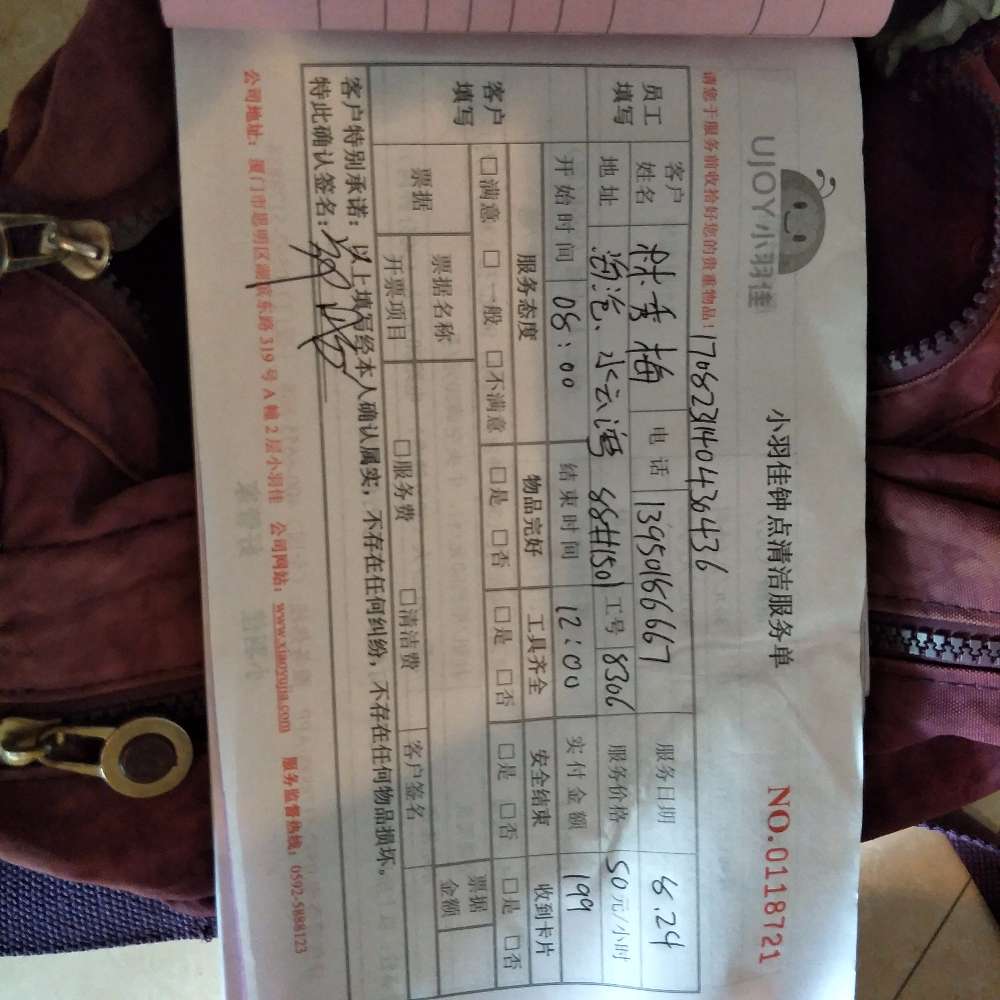 UJOY小羽佳
小羽佳钟点清洁服务单
NO.0118721
请您于服务前收拾好您的贵重物品！ 170823140443036436
员工填写 客户姓名 林秀梅 电话 13950186667 服务日期 8.24
地址 水云湾 88#1501 工号 8306 服务价格 50元/小时
开始时间 08：00 结束时间 12：00 实付金额 199
客户填写 服务态度 物品完好 工具齐全 安全结束 收到卡片
□满意 □一般 □不满意 □是 □否 □是 □否 □是 □否 □是 □否
票据 票据名称 票据金额
开票项目 □服务费 □清洁费 客户签名
客户特别承诺：以上填写经本人确认属实，不存在任何纠纷，不存在任何物品损坏。
特此确认签名：
公司地址：厦门市思明区湖滨东路319号A幢2层小羽佳 公司网站：www.xiaoyujia.com 服务监督热线：0592-5888123